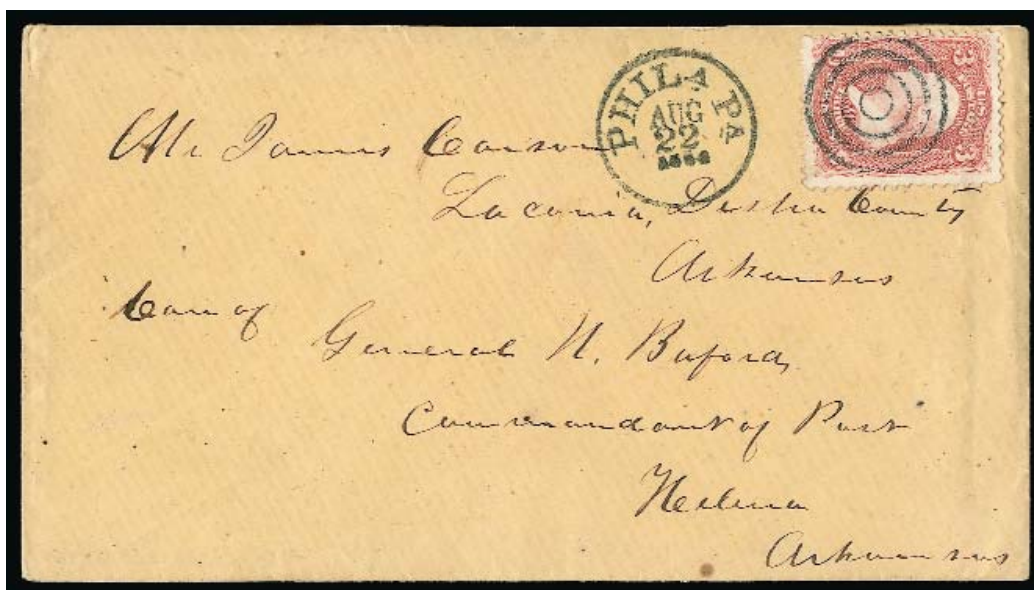 PHILA PA
AUG
22
3 3
Mr James Carson
Laconia, Desha County
Arkansas
Care of
General N. Buford,
Commandant of Post
Helena
Arkansas